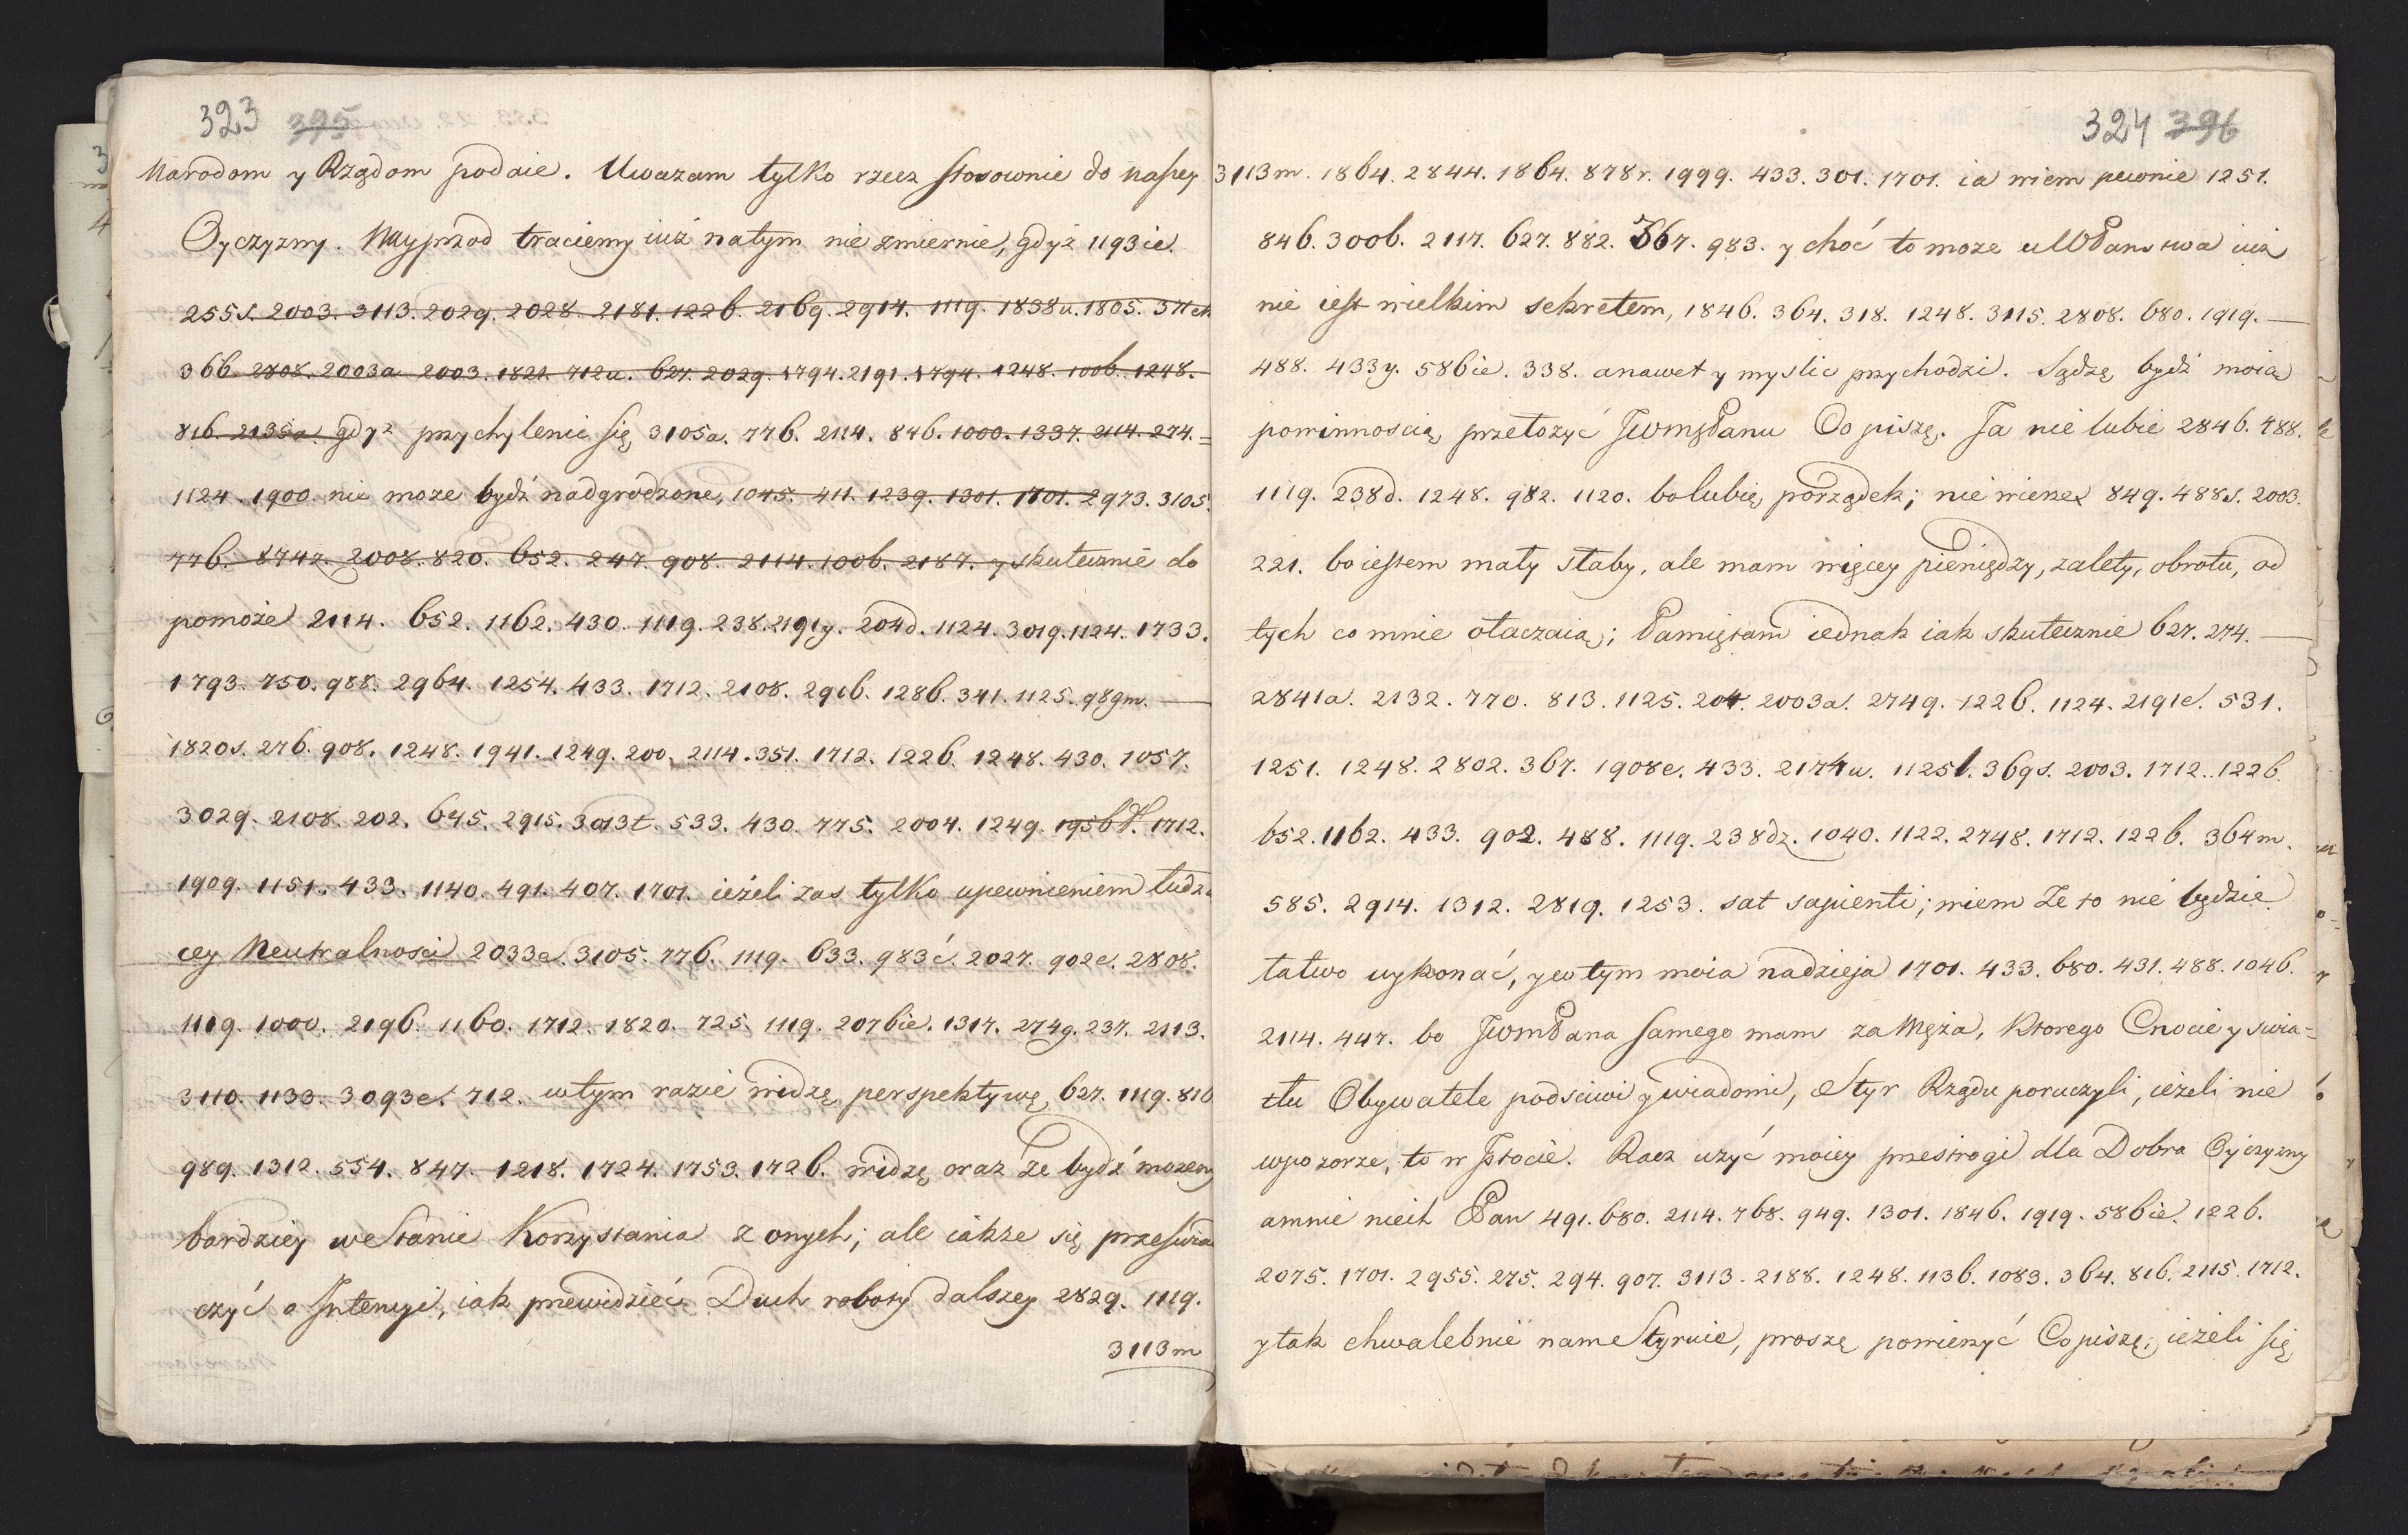 323 395
Narodom y Rządom podaie. Uwazam tylko rzecz stosownie do naszey
Oyczyzny. Nayprzod traciemy iuż natym nie zmiernie, gdyż 1193ie.
255s. 2003. 3113. 2029. 2028. 2181. 1226. 2169. 2914. 1119. 1838u. 1805. 371ch
366. 2808. 2003a 2003. 1821. 712u. 627. 2029. 1794. 2191. 1794. 1248. 1006. 1248.
816. 2135a. gdyż przychylenie się 3105a. 776. 2114. 846. 1000. 1337. 2114. 274. =
1124. 1900. nie moze bydź nadgrodzone, 1045. 411. 1239. 1301. 1701. 2973. 3105.
776. 8747. 2008. 820. 652. 247. 908. 2114. 1006. 2187. y skutecznie do
pomoże 2114. 652. 1162. 430. 1119. 238. 2191y. 204d. 1124. 3019. 1124. 1733.
1793. 750. 988. 2964. 1254. 433. 1712. 2108. 2916. 1286. 341. 1125. 989m. —
1820s. 276. 908. 1248. 1941. 1249. 200. 2114. 351. 1712. 1226. 1248. 430. 1057.
3029. 2108. 202. 645. 2915. 3013t. 533. 430. 775. 2004. 1249. 1956 1712.
1909. 1151. 433. 1140. 491. 407. 1701. ieżeli zas tylko upewnieniem ludzą
cey Neutralnosci 2033e. 3105. 776. 1119. 633. 983ć. 2027. 902e. 2808.
1119. 1000. 2196. 1160. 1712. 1820. 725. 1119. 207bie. 1317. 2749. 237. 2113.
3110. 1133. 3093e. 712. wtym razie widzę perspektywę, 627. 1119. 816
989. 1312. 554. 847. 1218. 1724. 1753. 1726. widzę oraz że bydź mozemy
bardziey westanie Korzystania z onych; ale iakże się przeswiad
czyć o Jntencyi, iak przewidzieć Duch roboty dalszey 2829. 1119.
3113m
324 396
3113m. 1864. 2844. 1864. 878r. 1999. 433. 301. 1701. ia wiem pewnie 1251.
846. 3006. 2117. 627. 882. 367. 983. y choć to moze u WPanstwa iuż
nie iest wielkim sekretem, 1846. 364. 318. 1248. 3115. 2808. 680. 1919. —
488. 433y. 586ie. 338. anawet y myslic przychodzi. Sądzę bydź moią
powinnoscią przełożyć JwmPanu Co piszę. Ja nie lubie 2846. 788.
1119. 238d. 1248. 982. 1120. bo lubię porządek; nie wierzę 849. 488s. 2003.
221. bo iestem mały słaby, ale mam więcey pieniędzy, zalety, obrotu, od
tych co mnie otaczaią; Pamiętam iednak iak skutecznie 627. 274. —
2841a. 2132. 770. 813. 1125. 204. 2003a. 2749. 1226. 1124. 2191e. 531.
1251. 1248. 2802. 367. 1908e. 433. 2174u. 1125l. 369s. 2003. 1712. 1226.
652. 1162. 433. 902. 488. 1119. 238dz. 1040. 1122. 2748. 1712. 1226. 364m.
585. 2914. 1312. 2819. 1253. sat sapienti; wiem że to nie będzie
łatwo wykonać, y w tym moia nadzieja 1701. 433. 680. 431. 488. 1046.
2114. 447. bo JwmPana samego mam za Męża, ktorego Cnocie y swia=
tłu Obywatele podsciwi y wiadomi, Styr Rządu poruczyli, ieżeli nie
wpozorze, to w Jstocie. Racz uzyć moiey przestrogi dla Dobra Oyczyzny
amnie niech Pan 491. 680. 2114. 768. 949. 1301. 1846. 1919. 586ie. 1226.
2075. 1701. 2955. 275. 294. 907. 3113. 2188. 1248. 1136. 1083. 364. 816. 2115. 1712.
y tak chwalebnie name Styruie, proszę powierzyć Co piszę; ieżeli się